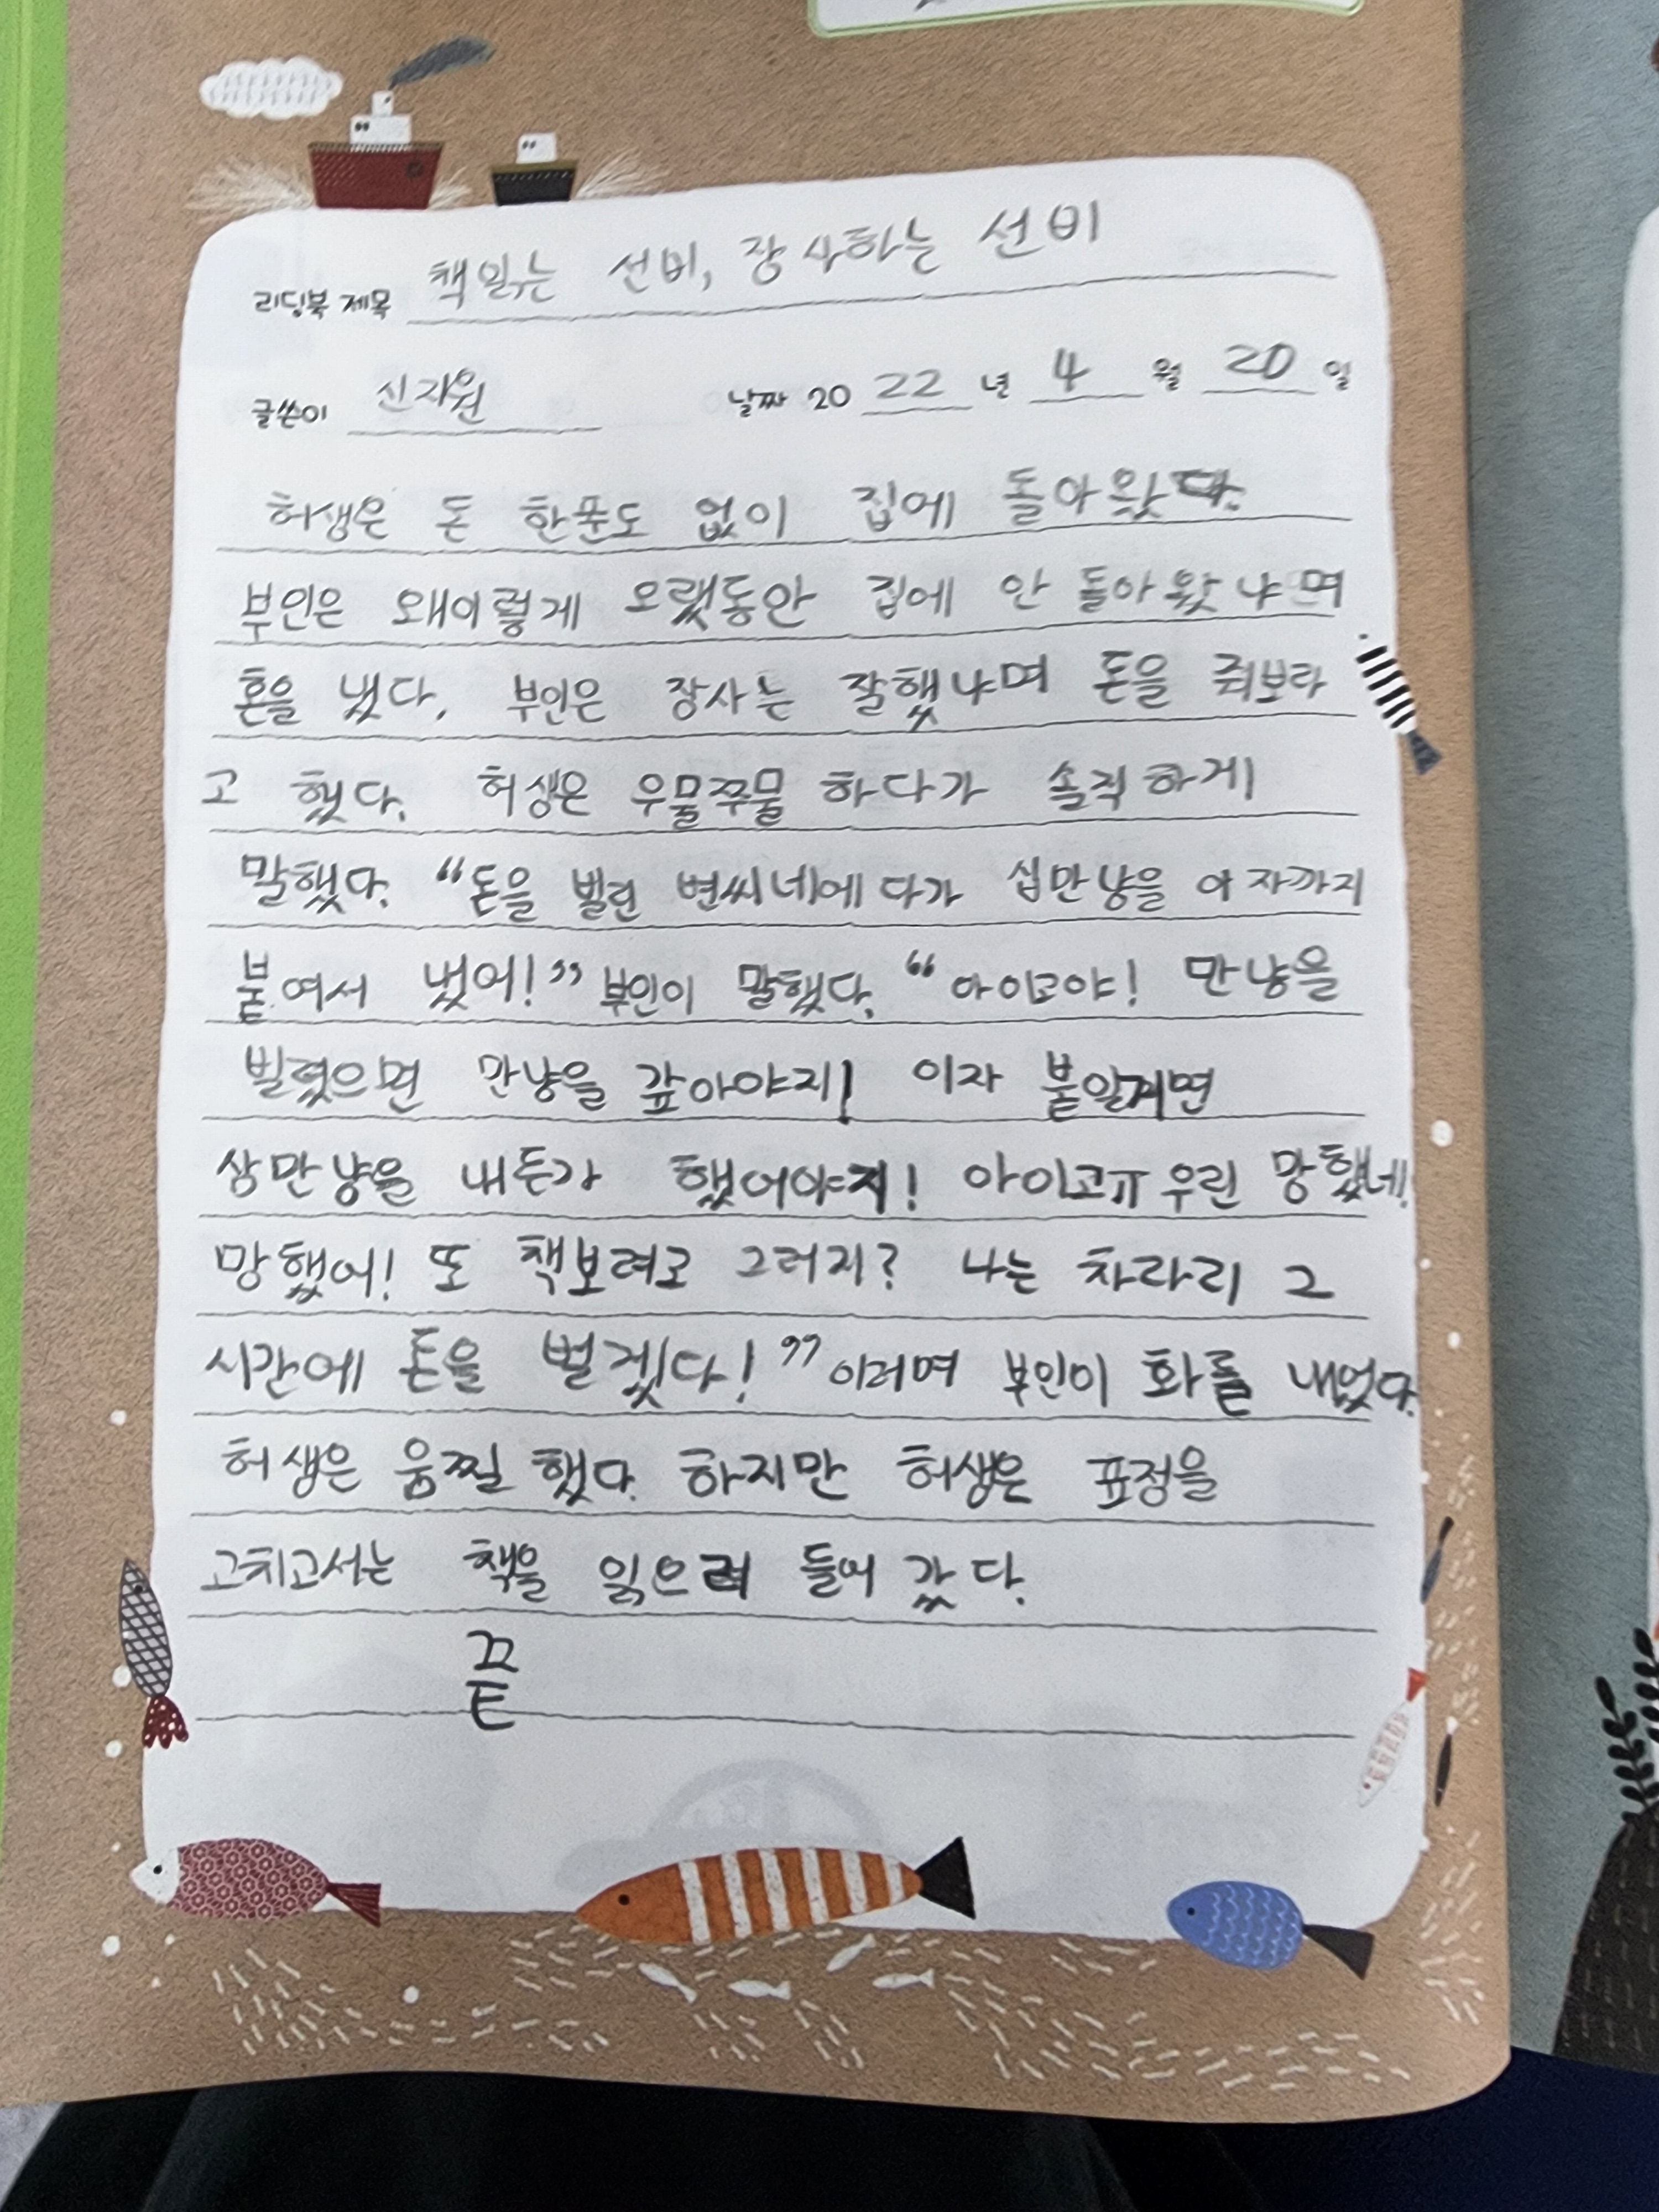 리딩북 제목 책읽는 선비, 장사하는 선비
글쓴이 신지원 날짜 20 22 년 4 월 20 일
허생은 돈 한푼도 없이 집에 돌아왔다.
부인은 왜이렇게 오랬동안 집에 안 돌아왔냐며
혼을 냈다. 부인은 장사는 잘했냐며 돈을 줘보라
고 했다. 허생은 우물쭈물 하다가 솔직하게
말했다. “돈을 빌린 변씨네에다가 십만냥을 이자까지
붙여서 냈어!” 부인이 말했다. “아이고야! 만냥을
빌렸으면 만냥을 갚아야지! 이자 붙일거면
삼만냥을 내든가 했어야지! 아이고ㅠ 우린 망했네!
망했어! 또 책보려고 그러지? 나는 차라리 그
시간에 돈을 벌겠다!” 이러며 부인이 화를 내었다.
허생은 움찔 했다. 하지만 허생은 표정을
고치고서는 책을 읽으려 들어 갔다.
끝